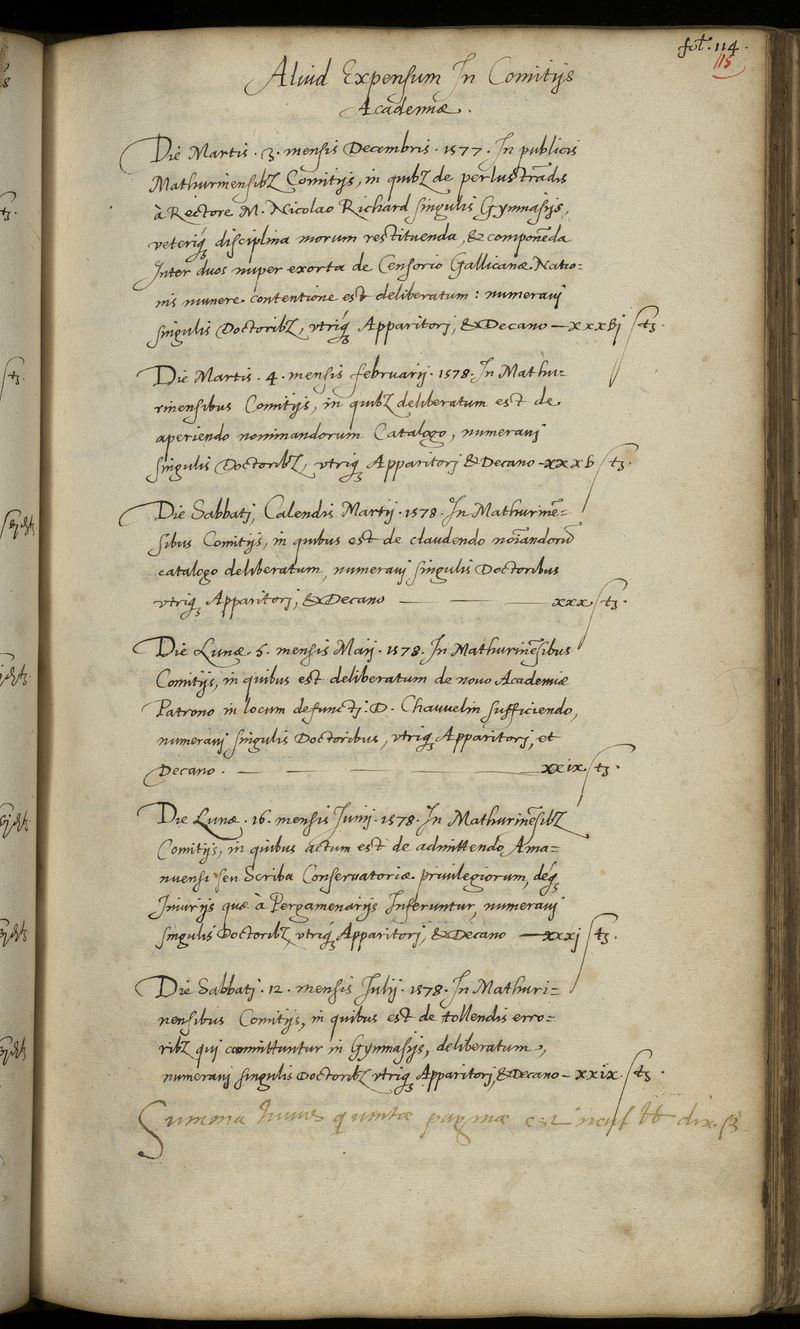 fol. 114.
115
Aliud Expensum In Comitijs
Academiæ.
Die Martis . 3 . mensis Decembris . 1577 . In publicis
Mathurinensibꝫ Comitijs, in quibꝫ de perlustrādis
à Rectore M. Nicolao Richard singulis Gymnasijs,
veteriq́ꝫ disciplina morum restituenda, & componēda
Inter duos nuper exorta de Censorio Gallicanæ Natio=
nis munere contentione est deliberatum : numeravj
singulis Doctoribꝫ, vtriq́ꝫ Apparitorj, & Decano — xxx
Die Martis . 4 . mensis februarij . 1578 . In Mathu-
rinensibus Comitijs, in quibꝫ deliberatum est de
aperiendo nominandorum Catalogo, numeravj
singulis Doctoribꝫ, vtriqꝫ Apparitorj & Decano – xxx
Die Sabbatj, Calendis Martij . 1578 . In Mathurinē=
sibus Comitijs, in quibus est de claudendo noīandorū
catalogo deliberatum, numeravj singulis Doctoribus
vtriqꝫ Apparitorj, & Decano — — — xxx ſtꝫ .
Die Lunæ . 5 . mensis Maij . 1578 . In Mathurinēsibus
Comitijs, in quibus est deliberatum de nouo Academiæ
Patrono in locum defunctj . D . Chauvelin sufficiendo,
numeravj singulis Doctoribus, vtriqꝫ Apparitorj, et
Decano . — — — — xxix ſtꝫ .
Die Lunæ . 16 . mensis Junij . 1578 . In Mathurinēsibꝫ
Comitijs, in quibus actum est de admittendo Ama=
nuensi seu Scriba Conseruatoriæ priuilegiorum, deq́ꝫ
Iniurijs quæ à Pergamenarijs Inferuntur, numeravj
singulis Doctoribꝫ vtriq́ꝫ Apparitorj, & Decano — xxxj ſtꝫ .
Die Sabbatj . 12 . mensis Julij . 1578 . In Mathuri=
nensibus Comitijs, in quibus est de tollendis erro=
ribꝫ quj committuntur in Gymnasijs, deliberatum,
numeravj singulis Doctoribꝫ vtriqꝫ Apparitorj, & Decano – xxix ſtꝫ .
Summa huius paginæ est neuf ₶ dix. ß